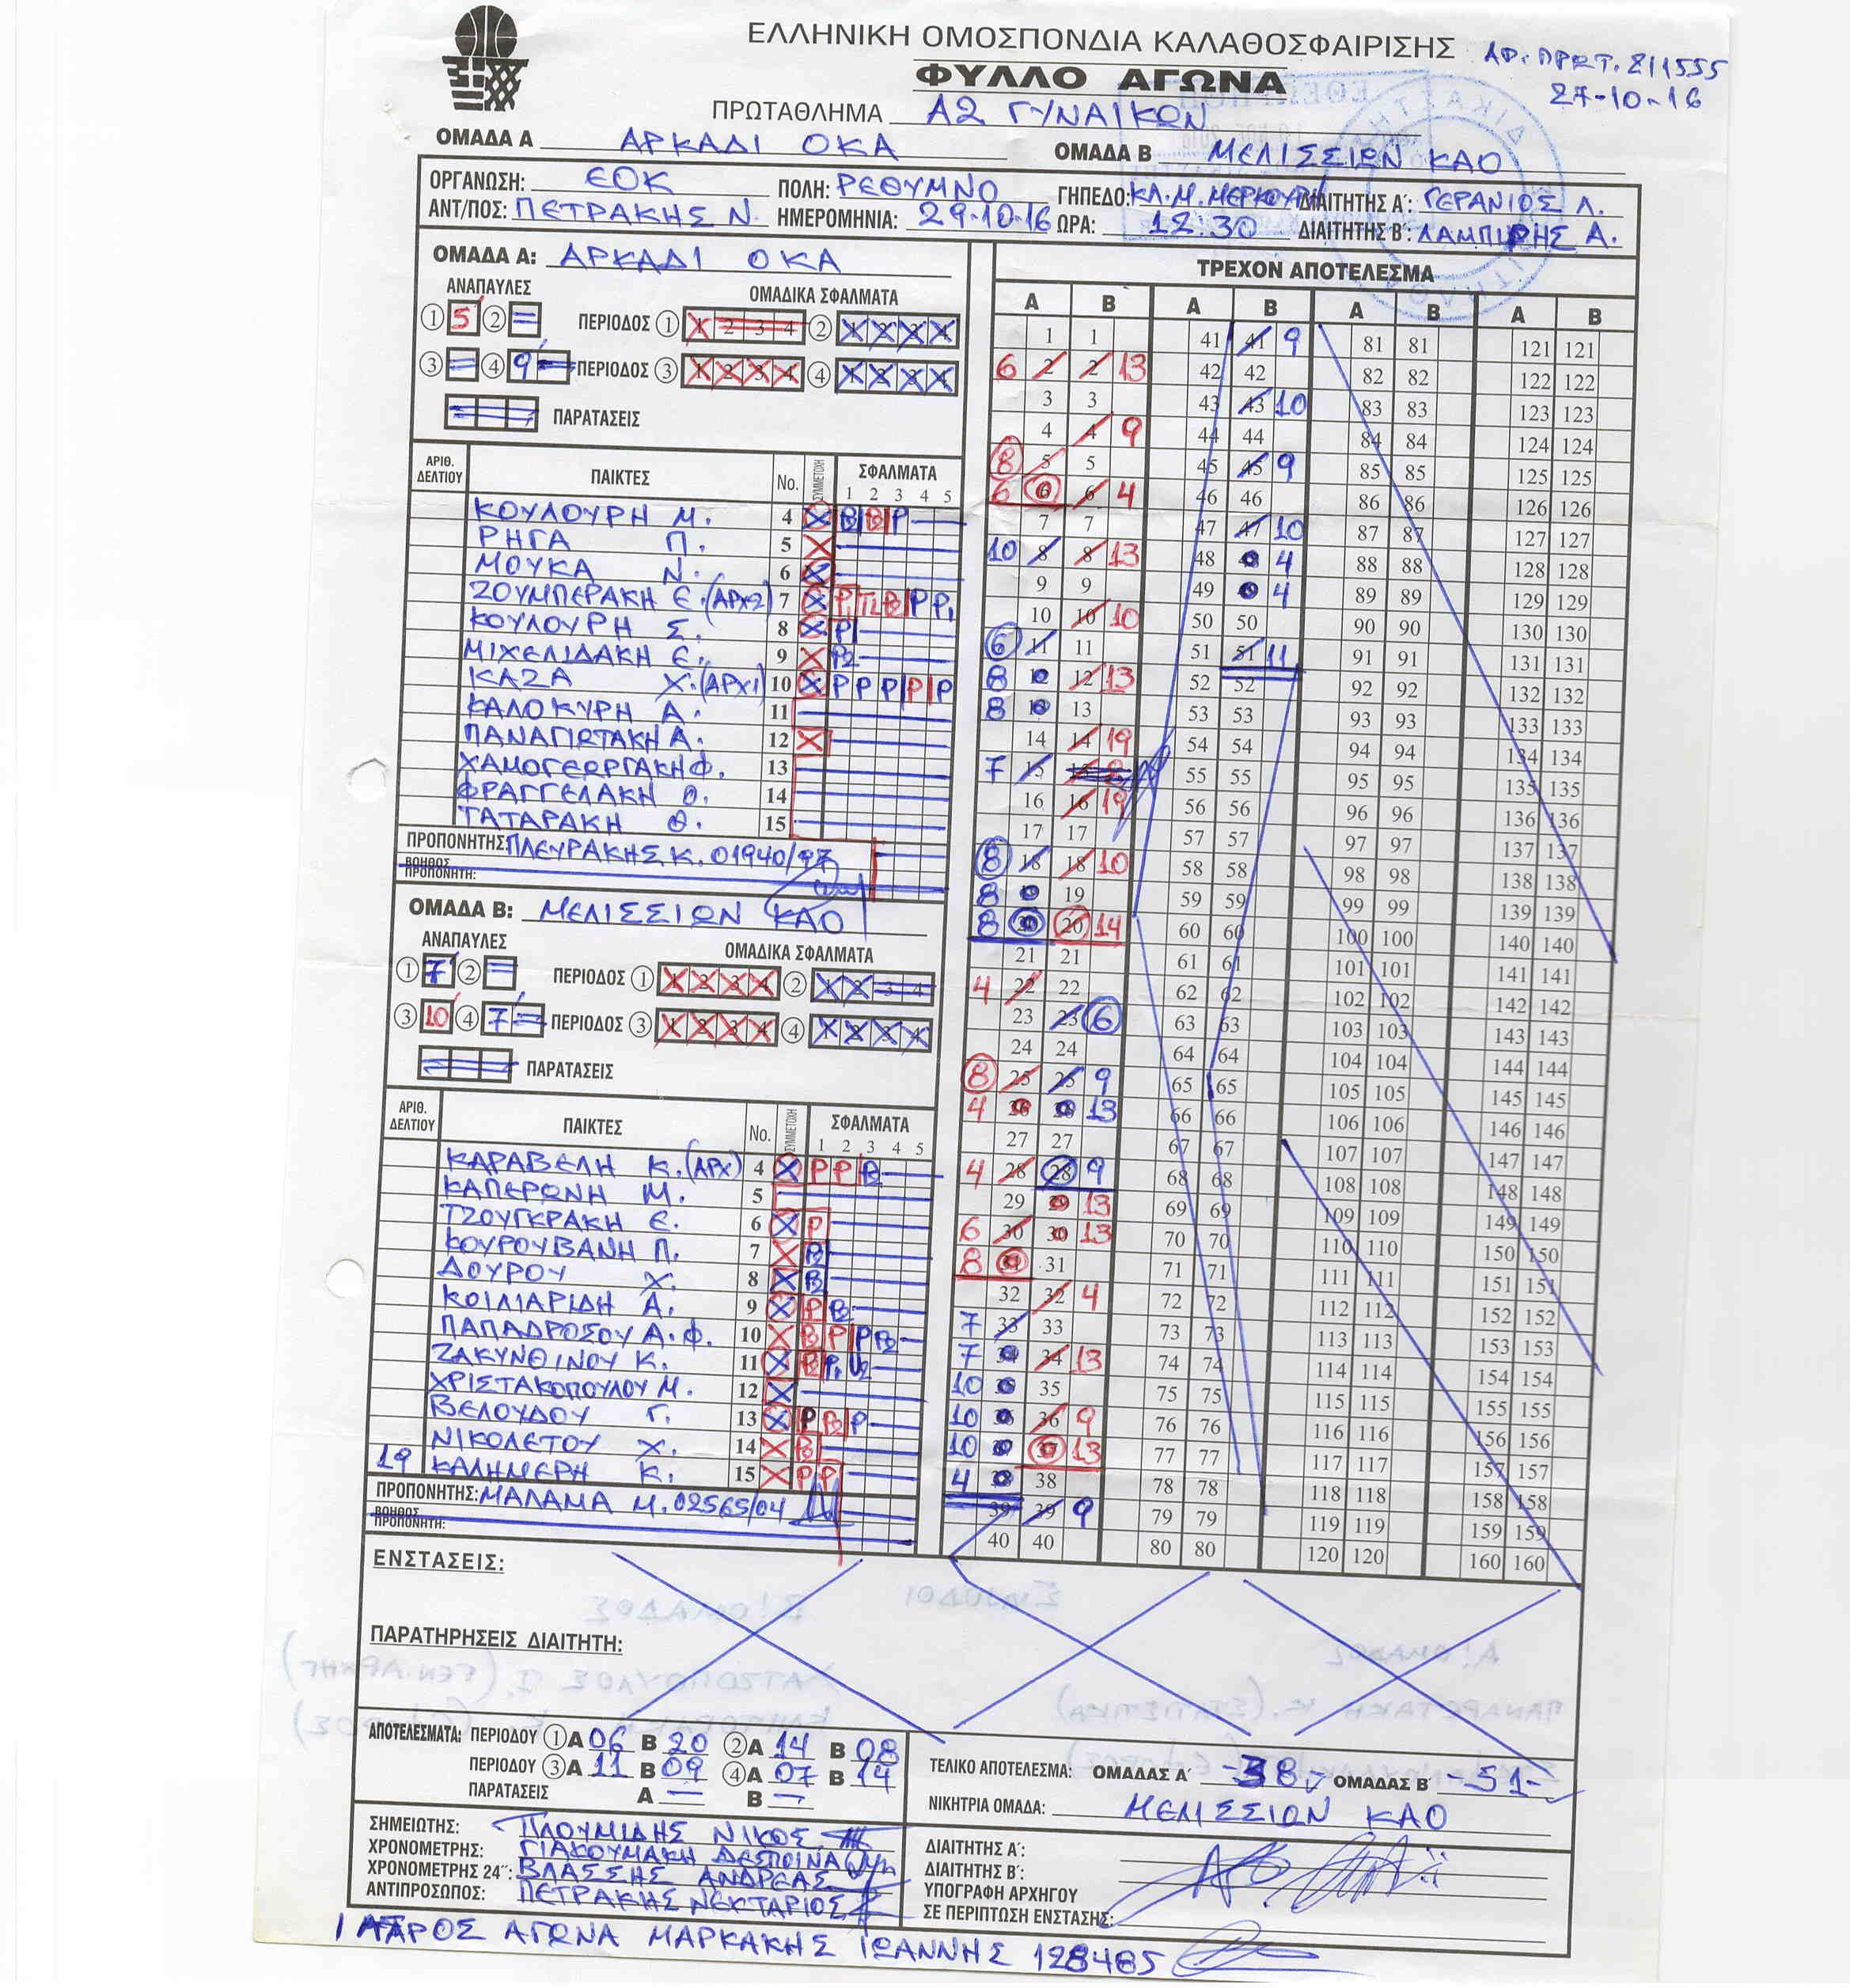 ΕΛΛΗΝΙΚΗ ΟΜΟΣΠΟΝΔΙΑ ΚΑΛΑΘΟΣΦΑΙΡΙΣΗΣ
ΑΡ. ΠΡΩΤ. 211555
ΦΥΛΛΟ ΑΓΩΝΑ
27-10-16
ΠΡΩΤΑΘΛΗΜΑ Α2 ΓΥΝΑΙΚΩΝ
ΟΜΑΔΑ Α ΑΡΚΑΔΙ ΟΚΑ ΟΜΑΔΑ Β ΜΕΛΙΣΣΙΩΝ ΚΑΟ
ΟΡΓΑΝΩΣΗ: ΕΟΚ ΠΟΛΗ: ΡΕΘΥΜΝΟ ΓΗΠΕΔΟ: ΚΛ. Μ. ΜΕΡΚΟΥΡΗ ΔΙΑΙΤΗΤΗΣ Α΄: ΓΕΡΑΝΙΟΣ Λ.
ΑΝΤ/ΠΟΣ: ΠΕΤΡΑΚΗΣ Ν. ΗΜΕΡΟΜΗΝΙΑ: 29-10-16 ΩΡΑ: 12:30 ΔΙΑΙΤΗΤΗΣ Β΄: ΛΑΜΠΙΡΗΣ Α.
ΟΜΑΔΑ Α: ΑΡΚΑΔΙ ΟΚΑ
ΑΝΑΠΑΥΛΕΣ ΟΜΑΔΙΚΑ ΣΦΑΛΜΑΤΑ
1 5 2 = ΠΕΡΙΟΔΟΣ 1 1 2 3 4 2 1 2 3 4
3 = 4 9 = ΠΕΡΙΟΔΟΣ 3 1 2 3 4 4 1 2 3 4
ΠΑΡΑΤΑΣΕΙΣ
ΑΡΙΘ. ΔΕΛΤΙΟΥ ΠΑΙΚΤΕΣ No. ΣΥΜΜΕΤΟΧΗ ΣΦΑΛΜΑΤΑ
1 2 3 4 5
ΚΟΥΛΟΥΡΗ Μ. 4
ΡΗΓΑ Π. 5
ΜΟΥΚΑ Ν. 6
ΖΟΥΜΠΕΡΑΚΗ Ε. (ΑΡΧ2) 7
ΚΟΥΛΟΥΡΗ Σ. 8 P
ΜΙΧΕΛΙΔΑΚΗ Ε. 9 P2
ΚΑΖΑ Χ. (ΑΡΧ1) 10 P P P P P
ΚΑΛΟΚΥΡΗ Α. 11
ΠΑΝΑΓΙΩΤΑΚΗ Α. 12
ΧΑΜΟΓΕΩΡΓΑΚΗ Φ. 13
ΦΡΑΓΓΕΛΑΚΗ Θ. 14
ΤΑΤΑΡΑΚΗ Θ. 15
ΠΡΟΠΟΝΗΤΗΣ: ΠΛΕΥΡΑΚΗΣ Κ. 01940/97
ΒΟΗΘΟΣ ΠΡΟΠΟΝΗΤΗ:
ΟΜΑΔΑ Β: ΜΕΛΙΣΣΙΩΝ ΚΑΟ
ΑΝΑΠΑΥΛΕΣ ΟΜΑΔΙΚΑ ΣΦΑΛΜΑΤΑ
1 7 2 = ΠΕΡΙΟΔΟΣ 1 1 2 3 4 2 1 2 3 4
3 10 4 7 = ΠΕΡΙΟΔΟΣ 3 1 2 3 4 4 1 2 3 4
ΠΑΡΑΤΑΣΕΙΣ
ΑΡΙΘ. ΔΕΛΤΙΟΥ ΠΑΙΚΤΕΣ No. ΣΥΜΜΕΤΟΧΗ ΣΦΑΛΜΑΤΑ
1 2 3 4 5
ΚΑΡΑΒΕΛΗ Κ. (ΑΡΧ) 4
ΚΑΠΕΡΩΝΗ Μ. 5
ΤΖΟΥΓΚΡΑΚΗ Ε. 6 P
ΚΟΥΡΟΥΒΑΝΗ Π. 7
ΔΟΥΡΟΥ Χ. 8
ΚΟΙΛΙΑΡΙΔΗ Α. 9
ΠΑΠΑΔΡΟΣΟΥ Α.Φ. 10
ΖΑΚΥΝΘΙΝΟΥ Κ. 11
ΧΡΙΣΤΑΚΟΠΟΥΛΟΥ Μ. 12
ΒΕΛΟΥΔΟΥ Γ. 13
ΝΙΚΟΛΕΤΟΥ Χ. 14
19 ΚΑΛΗΜΕΡΗ Κ. 15 P P
ΠΡΟΠΟΝΗΤΗΣ: ΜΑΛΑΜΑ Μ. 02565/04
ΒΟΗΘΟΣ ΠΡΟΠΟΝΗΤΗ:
ΤΡΕΧΟΝ ΑΠΟΤΕΛΕΣΜΑ
Α Β Α Β Α Β Α Β
1 1 41 41 9 81 81 121 121
6 2 2 13 42 42 82 82 122 122
3 3 43 43 10 83 83 123 123
4 4 9 44 44 84 84 124 124
8 5 5 45 45 9 85 85 125 125
6 6 6 4 46 46 86 86 126 126
7 7 47 47 10 87 87 127 127
10 8 8 13 48 4 88 88 128 128
9 9 49 4 89 89 129 129
10 10 10 50 50 90 90 130 130
6 11 11 51 51 11 91 91 131 131
8 12 13 52 52 92 92 132 132
8 13 53 53 93 93 133 133
14 14 19 54 54 94 94 134 134
7 15 55 55 95 95 135 135
16 16 19 56 56 96 96 136 136
17 17 57 57 97 97 137 137
8 18 18 10 58 58 98 98 138 138
8 19 59 59 99 99 139 139
8 20 20 14 60 60 100 100 140 140
21 21 61 61 101 101 141 141
4 22 22 62 62 102 102 142 142
23 23 6 63 63 103 103 143 143
24 24 64 64 104 104 144 144
8 25 25 9 65 65 105 105 145 145
4 26 26 13 66 66 106 106 146 146
27 27 67 67 107 107 147 147
4 28 28 9 68 68 108 108 148 148
29 29 13 69 69 109 109 149 149
6 30 30 13 70 70 110 110 150 150
8 31 31 71 71 111 111 151 151
32 32 4 72 72 112 112 152 152
7 33 33 73 73 113 113 153 153
7 34 34 13 74 74 114 114 154 154
10 35 75 75 115 115 155 155
10 36 9 76 76 116 116 156 156
10 37 13 77 77 117 117 157 157
4 38 78 78 118 118 158 158
39 39 9 79 79 119 119 159 159
40 40 80 80 120 120 160 160
ΕΝΣΤΑΣΕΙΣ:
ΠΑΡΑΤΗΡΗΣΕΙΣ ΔΙΑΙΤΗΤΗ:
ΑΠΟΤΕΛΕΣΜΑΤΑ: ΠΕΡΙΟΔΟΥ 1 Α 06 Β 20 2 Α 14 Β 08
ΠΕΡΙΟΔΟΥ 3 Α 11 Β 09 4 Α 07 Β 14
ΠΑΡΑΤΑΣΕΙΣ Α — Β —
ΤΕΛΙΚΟ ΑΠΟΤΕΛΕΣΜΑ: ΟΜΑΔΑΣ Α΄ -38- ΟΜΑΔΑΣ Β΄ -51-
ΝΙΚΗΤΡΙΑ ΟΜΑΔΑ: ΜΕΛΙΣΣΙΩΝ ΚΑΟ
ΣΗΜΕΙΩΤΗΣ: ΠΛΟΥΜΙΔΗΣ ΝΙΚΟΣ
ΧΡΟΝΟΜΕΤΡΗΣ: ΓΙΑΚΟΥΜΑΚΗ ΔΕΣΠΟΙΝΑ
ΧΡΟΝΟΜΕΤΡΗΣ 24΄΄: ΒΛΑΣΣΗΣ ΑΝΔΡΕΑΣ
ΑΝΤΙΠΡΟΣΩΠΟΣ: ΠΕΤΡΑΚΗΣ ΝΕΚΤΑΡΙΟΣ
ΔΙΑΙΤΗΤΗΣ Α΄:
ΔΙΑΙΤΗΤΗΣ Β΄:
ΥΠΟΓΡΑΦΗ ΑΡΧΗΓΟΥ
ΣΕ ΠΕΡΙΠΤΩΣΗ ΕΝΣΤΑΣΗΣ:
ΙΑΤΡΟΣ ΑΓΩΝΑ ΜΑΡΚΑΚΗΣ ΙΩΑΝΝΗΣ 128485